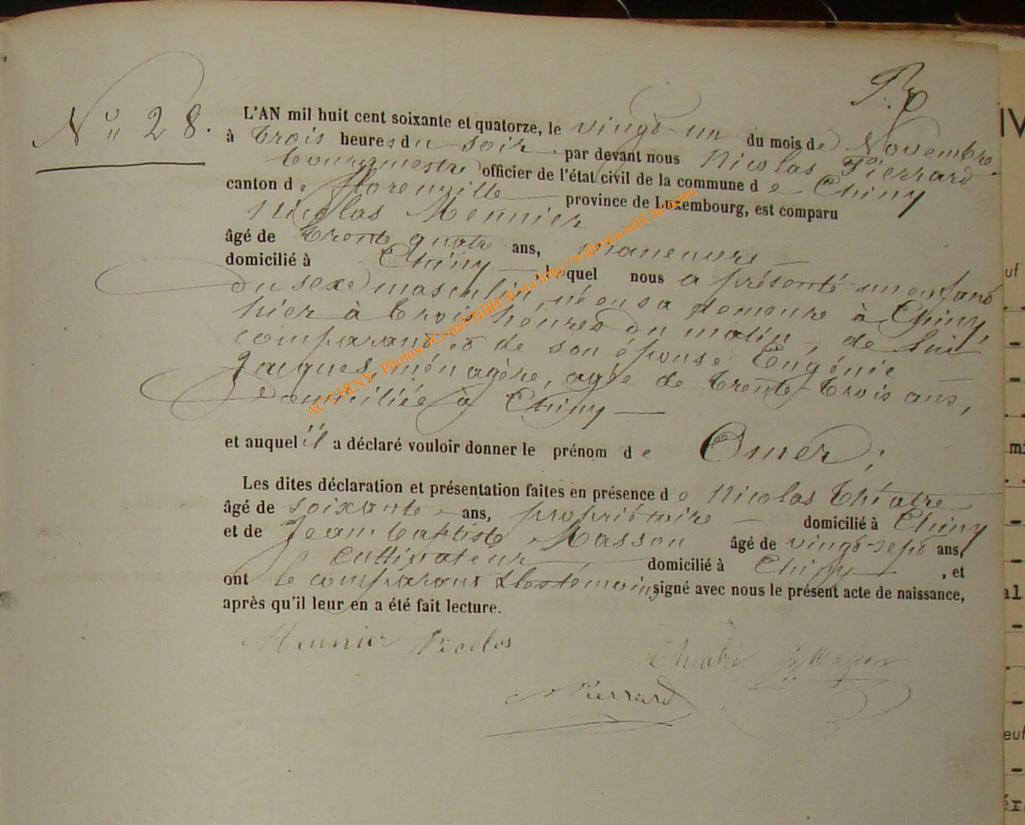 No 28.
L'AN mil huit cent soixante et quatorze, le vingt-un du mois de Novembre
à trois heures du soir par devant nous Nicolas Pierrard
bourgmestre officier de l'état civil de la commune de Chiny
canton de florenville province de Luxembourg, est comparu
Nicolas Meunier
âgé de trente quatre ans, manœuvre
domicilié à Chiny lequel nous a présenté un enfant
du sexe masculin, né en sa demeure à Chiny,
hier à trois heures du matin, de lui
comparant et de son épouse Eugénie
Jacques, ménagère, agée de trente-trois ans,
domiciliée à Chiny
et auquel il a déclaré vouloir donner le prénom de Omer;
Les dites déclaration et présentation faites en présence de Nicolas Théatre
âgé de soixante ans, propriétaire domicilié à Chiny
et de Jean Baptiste Masson âgé de vingt-sept ans,
cultivateur domicilié à Chiny, et
ont le comparant & les témoins signé avec nous le présent acte de naissance,
après qu'il leur en a été fait lecture.
Meunier Nicolas
Théatre JB Masson
N Pierrard
AC CHINY - Photos